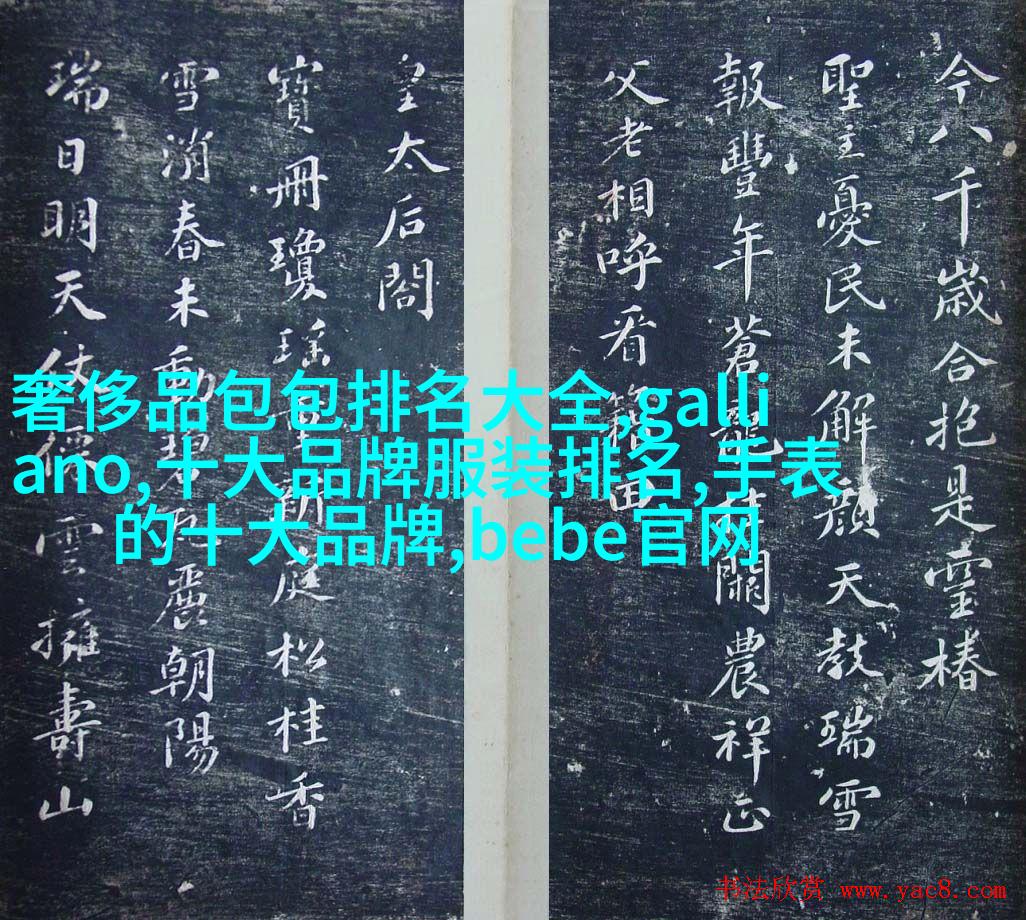 今八千歲合抱是靈椿
聖主憂民未解顏天教瑞雪
報豐年蒼龍挂闕農祥正
父老相呼看籍田
皇太后閣
寶冊瓊瑤重新庭松桂香
雪消春未動碧瓦麗朝陽
瑞日明天仗僊雲擁壽山
奢侈品包包排名大全,galli
ano,十大品牌服装排名,手表
的十大品牌,bebe官网
书法欣赏 www.yac8.com